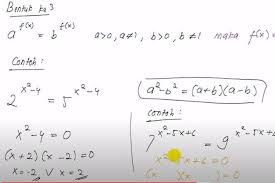 Bentuk ke 3
a^f(x) = b^f(x) a>0, a≠1, b>0, b≠1 maka f(x) =
Contoh :
2^x²-4 = 5^x²-4
x²-4 = 0
(x+2)(x-2) = 0
x=-2 ∨ x=2
a²-b² = (a+b)(a-b)
Contoh :
7^x²-5x+6 = 9^x²-5x+6
x²-5x+6 = 0
(x )(x ) = 0